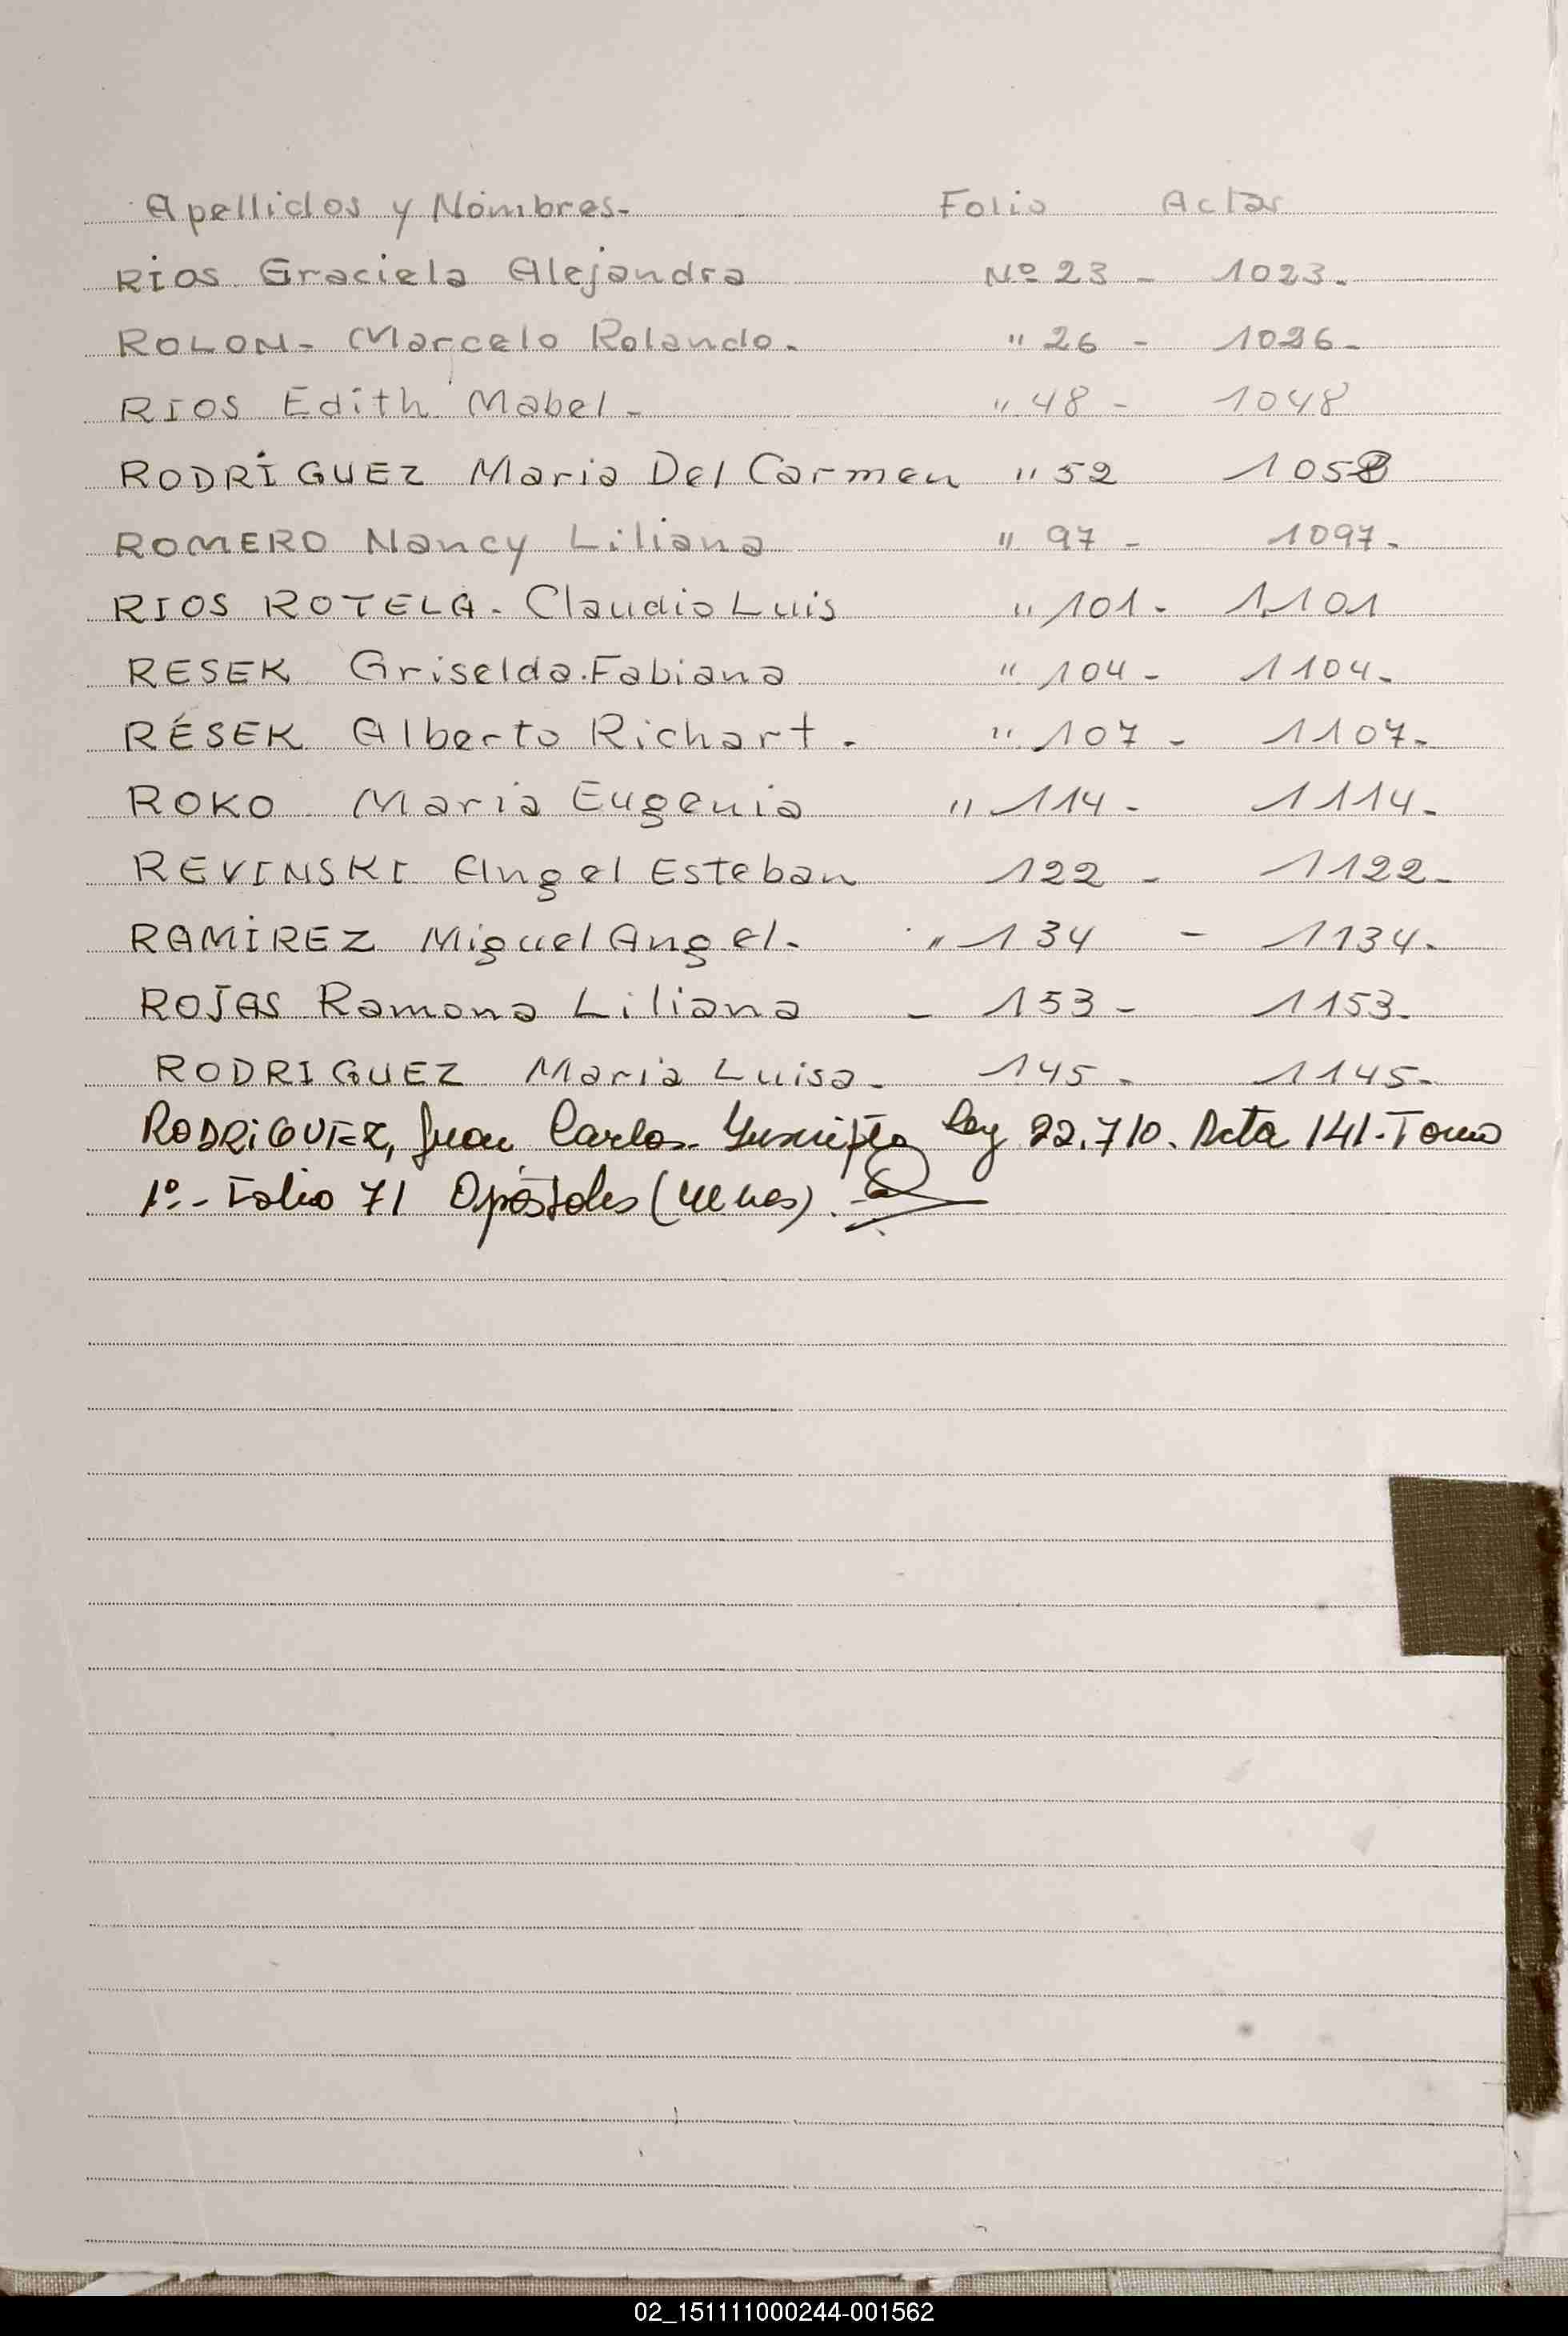 Apellidos y Nombres- Folio Actas
RIOS Graciela Alejandra Nº 23 - 1023.
ROLON- Marcelo Rolando. " 26 - 1026-
RIOS Edith Mabel - " 48 - 1048
RODRÍGUEZ Maria Del Carmen " 52 1052
ROMERO Nancy Liliana " 97 - 1097-
RIOS ROTELA- Claudio Luis " 101 - 1101
RESEK Griselda Fabiana " 104 - 1104-
RÉSEK Alberto Richart - " 107 - 1107-
ROKO Maria Eugenia " 114 - 1114-
REVINSKI Angel Esteban 122 - 1122-
RAMÍREZ Miguel Angel- " 134 - 1134-
ROJAS Ramona Liliana - 153 - 1153-
RODRIGUEZ Maria Luisa - 145 - 1145-
RODRiGUEZ, Juan Carlos- Inscripto Ley 22.710. Acta 141. Tomo
1º- Folio 71 Apóstoles (Mnes).
02_151111000244-001562